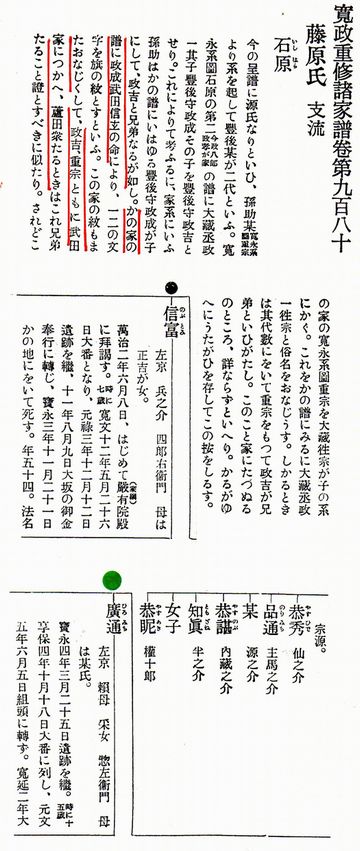 寛政重修諸家譜卷第九百八十
藤原氏 支流
石原 いしはら
今の呈譜に源氏なりといひ、孫助某寛永系圖重宗
より系を起して豐後某が二代といふ。寛
永系圖石原の第二今政八郎政擧が家の譜に大藏丞政
一其子豐後守政成その子を豐後守政吉と
せり。これによりて考ふるに、家系にいふ
孫助はかの譜にいはゆる豐後守政成が子
にして、政吉と兄弟なるが如し。かの家の
譜に政成武田信玄の命により、一二三の文
字を旗の紋とすといふ。この家の紋もま
たおなじくして、政吉、重宗ともに武田
家につかへ、蘆田衆たるときはこれ兄弟
たること證とすべきに似たり。されどこ
の家の寛永系圖重宗を大藏徃宗が子の系
にかく。これをかの譜にみるに大藏丞政
一徃宗と俗名をおなじうす。しかるとき
は其代數にをいて重宗をもつて政吉が兄
弟といひがたし。このこと家にたづぬる
のところ、詳ならずといへり。かるがゆ
へにうたがひを存してこの按をしるす。
信富 のぶとみ
左京 兵之介 四郎右衛門 母は
正吉が女。
萬治二年六月八日、はじめて嚴有院殿(家綱)
に拜謁す。時に七歳 寛文十二年五月二十六
日大番となり、元祿三年十二月十二日
遺跡を繼、十一年八月九日大坂の御金
奉行に轉じ、寶永三年十一月二十一日
かの地にをいて死す。年五十四。法名
宗源。
恭秀 やすひで 仙之介
品通 のりみち 主馬之介
某 源之介
恭謡 やすのぶ 内藏之介
知眞 ともざね 半之介
女子
恭昵 やすちか 權十郎
廣通 ひろみち
左京 賴母 采女 惣左衛門 母
は某氏。
寶永四年三月二十五日遺跡を繼。時に十五歳
享保四年十月十八日大番に列し、元文
五年六月五日組頭に轉ず。寛延二年大